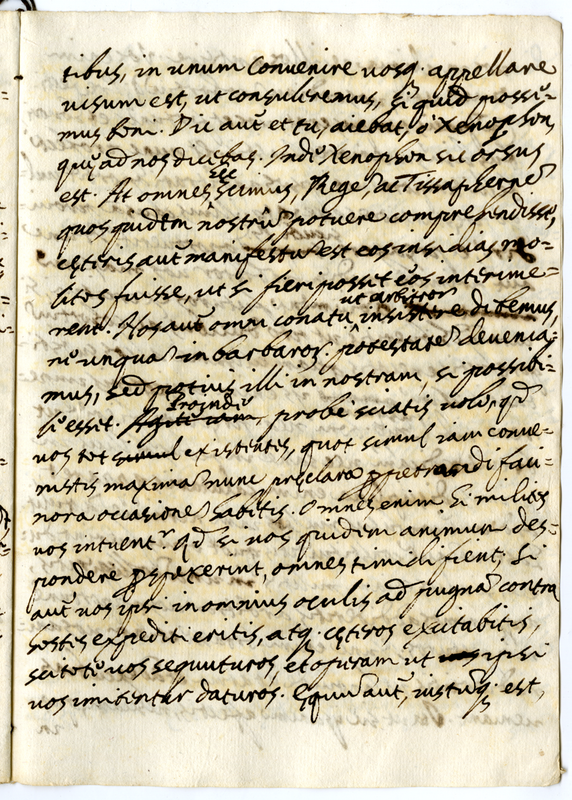 tibus, in unum Convenire vosq. appellare
visum est, ut consuleremus, si quid possu=
mus boni. Dic aut et tu, aiebat, ô Xenophon,
quę ad nos dicebas. Indè Xenophon sic orsus
est. At omnes hęc scimus, Rege, ac Tissapherne
quos quidem nostrũ potuere comprehendisse,
cęteris aut manifestu est eos insidias mo-
lites fuisse, ut si fieri possit eos interime=
rent. Nos aut omni conatu, ut arbitror debemus,
ne unqua in barbaror. potestate devenia=
mus, sed potius illi in nostram, si possibi=
le esset. Proinde, probè sciatis velim, qd
vos tot existentes, quot simul iam conve=
nistis maxima nunc pręclara ppetrandi faci=
nora occasione habetis. Omnes enim hi milites
vos intuent. qd si vos quidem animum des=
pondere pspexerint, omnes timidi fient; Si
aut vos ipsi in omnius oculis ad pugna contra
hostes expediti eritis, atq. cęteros excitabitis,
scitote vos sequuturos, et operam ut ipsi
vos imitentur daturos. Equu aut, iustuq. est,